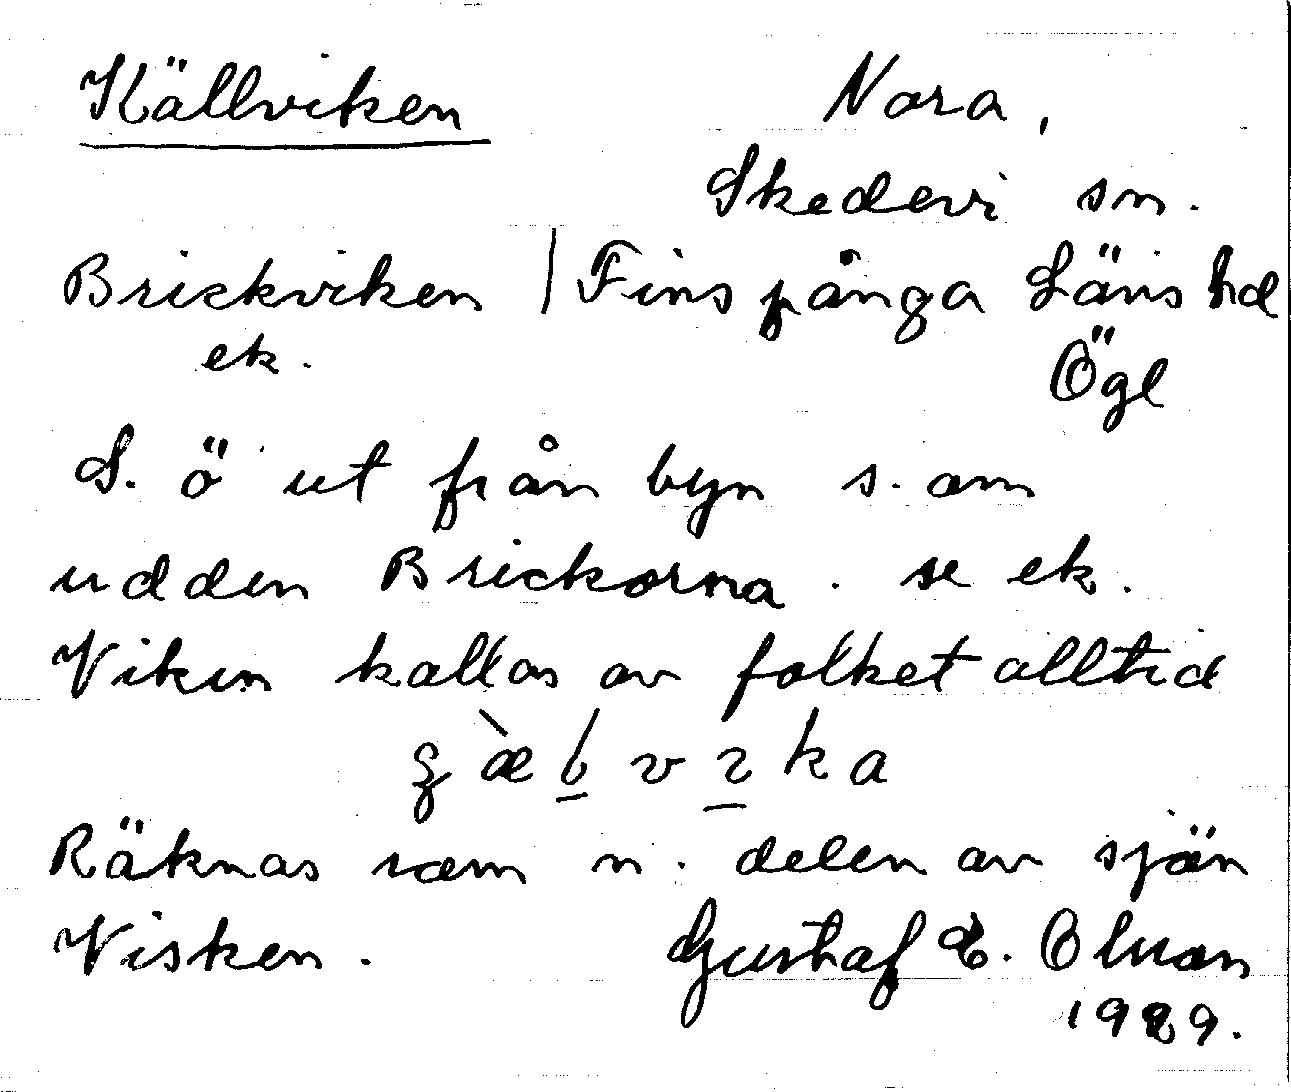 Källviken Nora,
Skedevi sn.
Brickviken / Finspånga Läns hd
ek. Ögl
S. ö ut från byn s. om
udden Brickorna. se ek.
Viken kallas av folket alltid
Räknas som n. delen av sjön
Visken. Gustaf E. Olsson
1929.